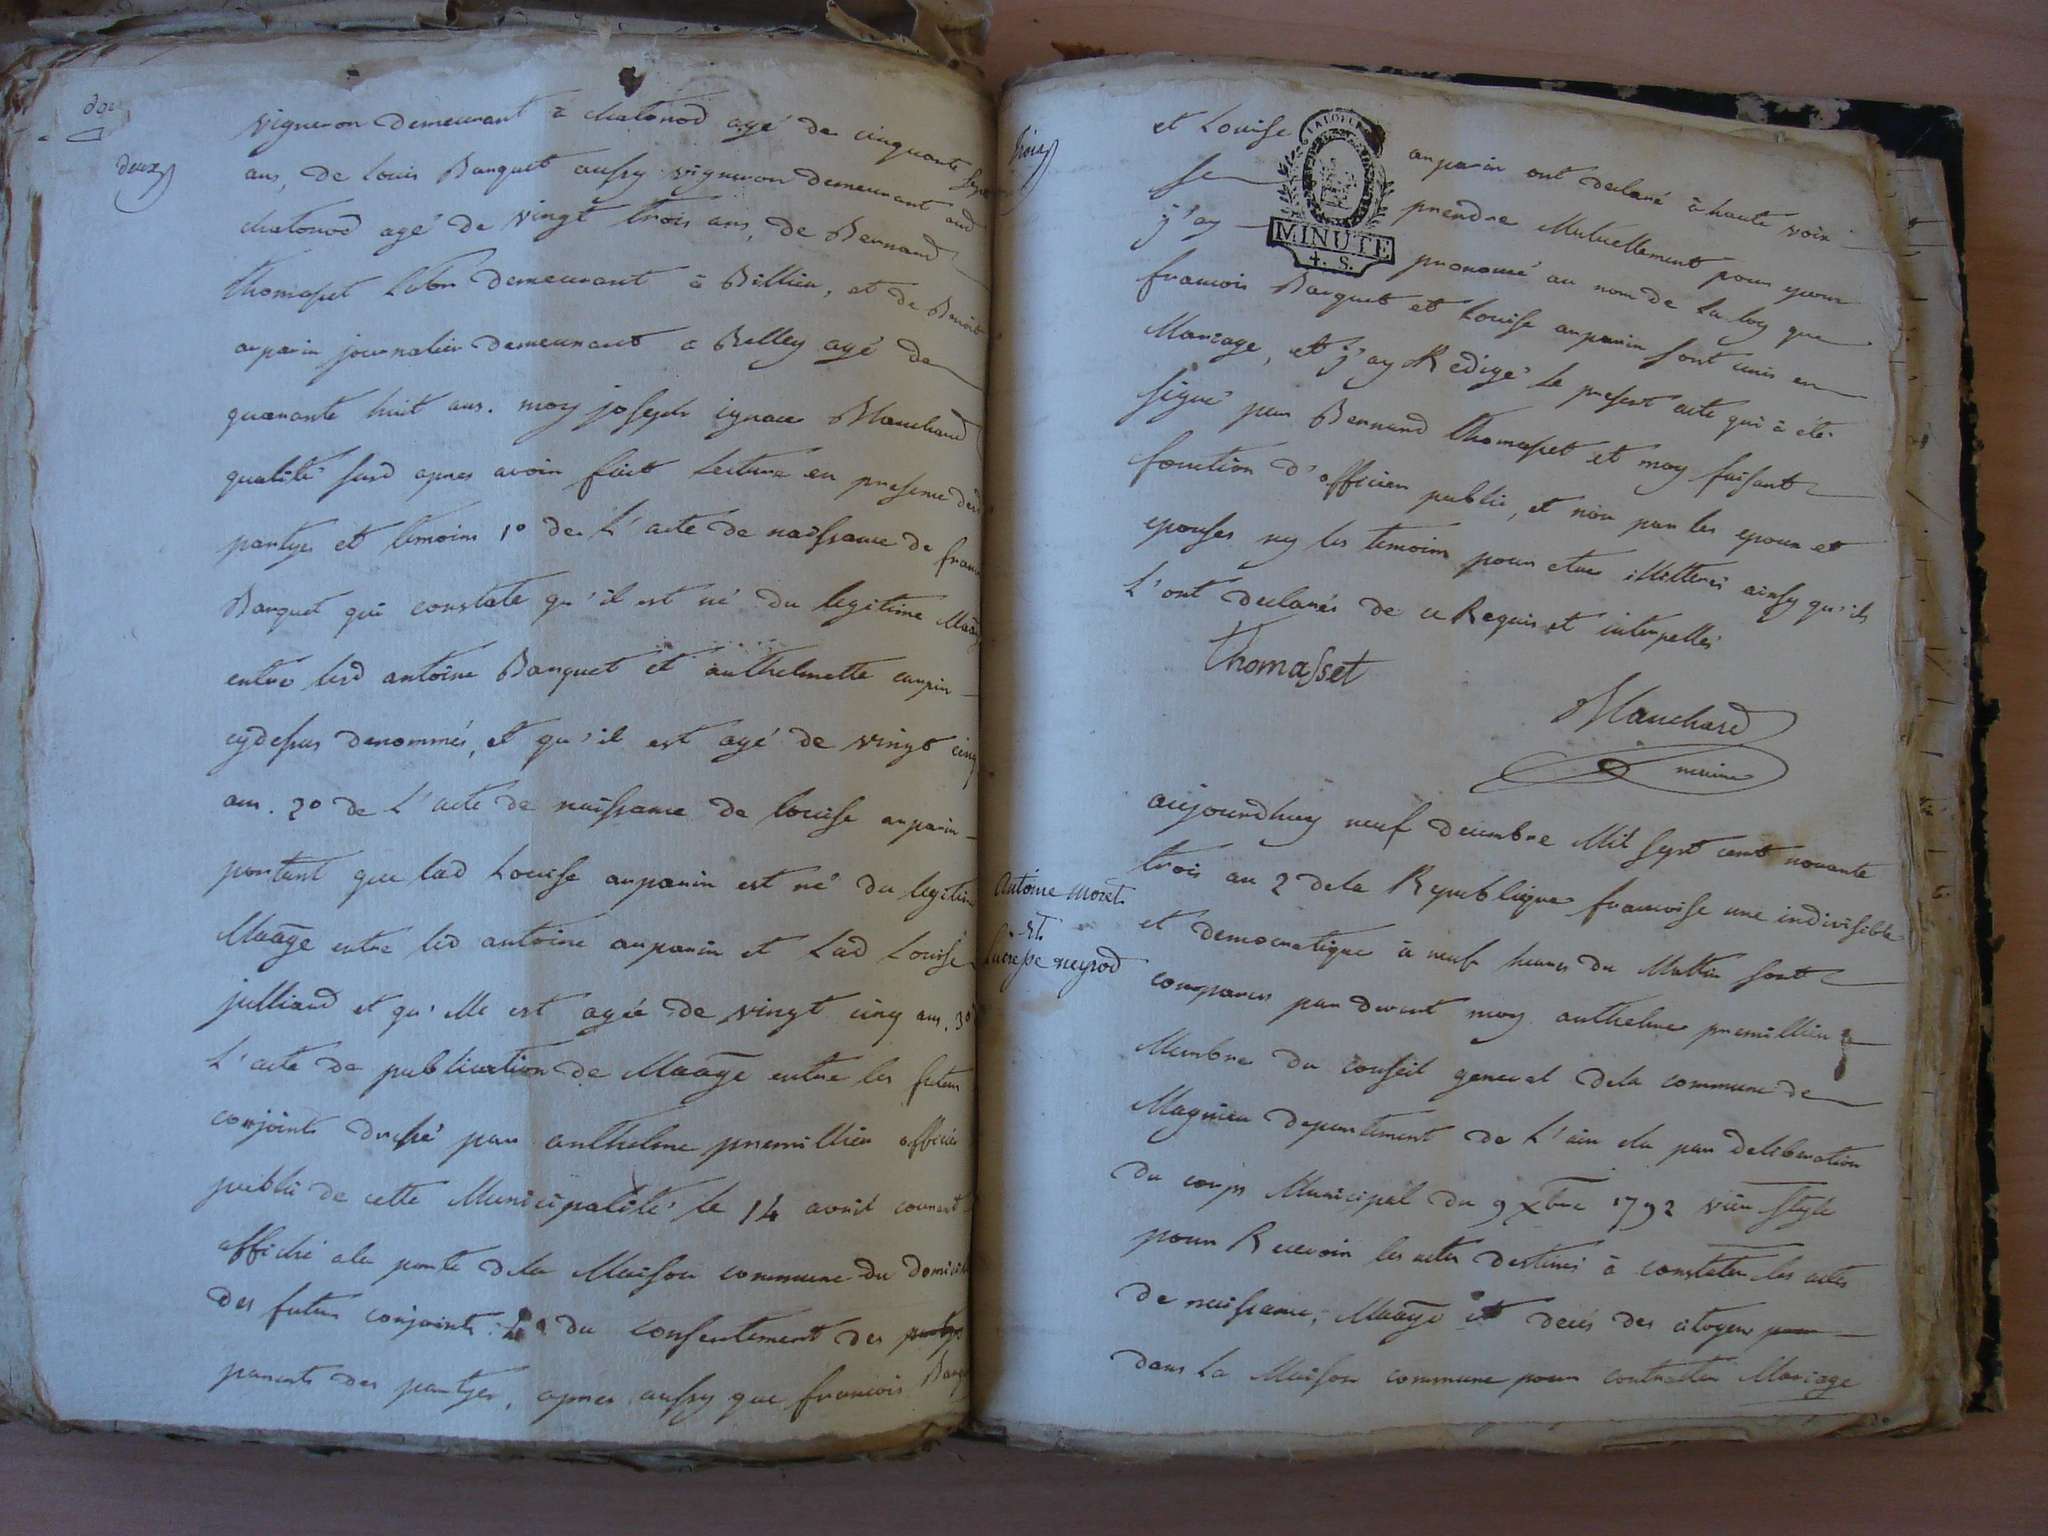 deux
vigneron demeurant a chatonod agé de cinquante sept
ans, de Louis Barquet aussy vigneron demeurant aud
chatonod agé de vingt trois ans, de Bernard
thomasset labr demeurant a Billieu, et de Benoit
anparin journalier demeurant a Belley agé de
quarante huit ans. moy joseph ignace Blanchard
qualité susd apres avoir fait lecture en presence desd
partyes et temoins 1° de L'acte de naissance de francois
Barquet qui constate qu'il est né du legitime Maage
entre lesd antoine Barquet et anthelmette
cydessus denommés, et qu'il est agé de vingt cinq
ans. 2° de L'acte de naissance de louise anparin
portant que lad Louise anparin est né du legitime
Maage entre led antoine anparin et Lad Louise
julliand et qu'elle est agée de vingt cinq ans. 3°
L'acte de publication de Maage entre les futurs
conjoints dressé par anthelme premillieu officier
public de cette Municipalité le 14 avril courant
affiché ala porte dela Maison commune du domicile
des futurs conjoints. 4° du consentement des partyes
parents des partyes, apres aussy que francois Barquet
trois
et Louise anparin ont declaré à haute voix
se prendre Mutuellement pour epoux
j'ay prononcé au nom de La loy que
francois Barquet et Louise anparin sont unis en
Mariage, et j'ay Redigé le present acte qui à été
signé par Bernard thomasset et moy faisant
fonction d'officier public, et non par les epoux et
epouses ny les temoins pour etre illitteré ainsy qu'ils
L'ont declarés de ce Requis et interpellés
MINUTE
4. S.
Thomasset
Blanchard
maire
Antoine moret
et
Lucresse neyrod
aujourdhuy neuf decembre Mil sept cent nonante
trois an 2 dela Republique francoise une indivisible
et democratique à neuf heures du Mattin sont
comparus par devant moy anthelme premillieu
Membre du conseil general dela commune de
Magnieu departement de L'ain elu par deliberation
du corps Municipal du 9 xbre 1792 vieu style
pour Recevoir les actes destinés à constater les actes
de naissance, Maage et decés des citoyens pour
dans La Maison commune pour contratter Mariage